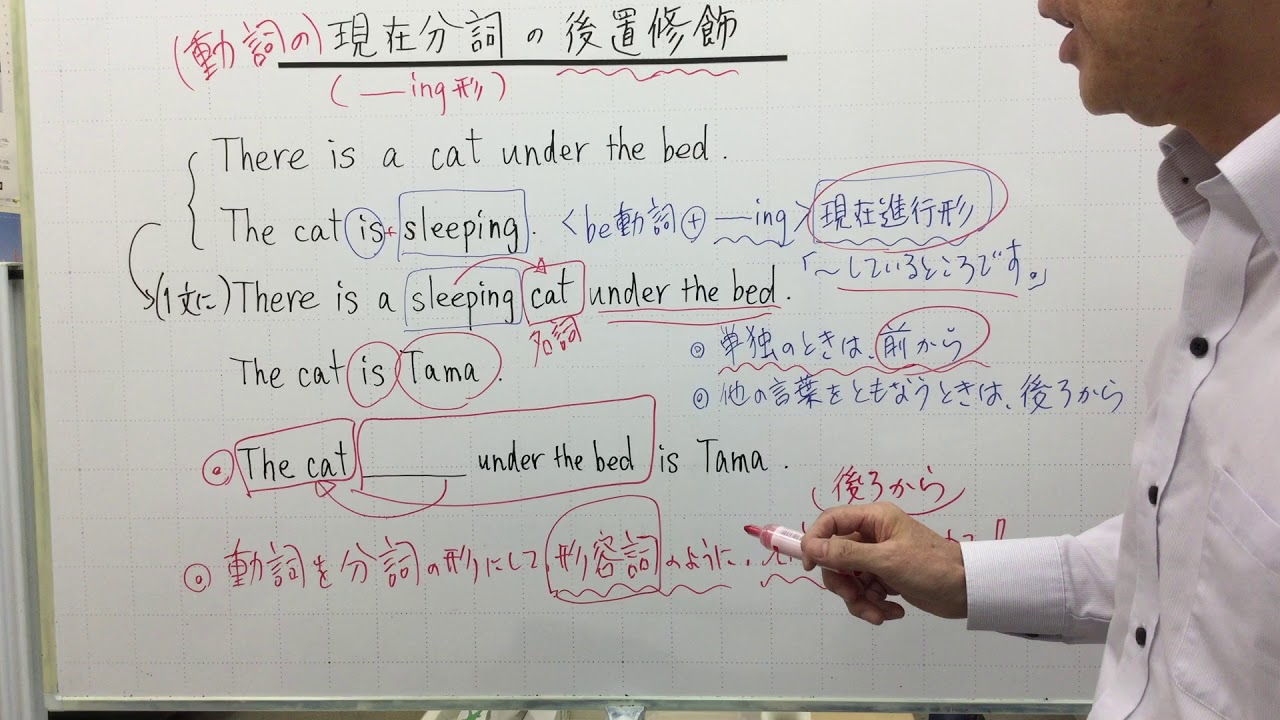 (動詞の)現在分詞の後置修飾
(—ing形)
There is a cat under the bed.
The cat is + sleeping. <be動詞⊕—ing> 現在進行形
「~しているところです。」
(1文に) There is a sleeping cat under the bed.
名詞
◎ 単独のときは、前から
The cat is Tama.
◎ 他の言葉をともなうときは、後ろから
◎ The cat ______ under the bed is Tama.
(後ろから)
◎ 動詞を分詞の形にして、形容詞のように、